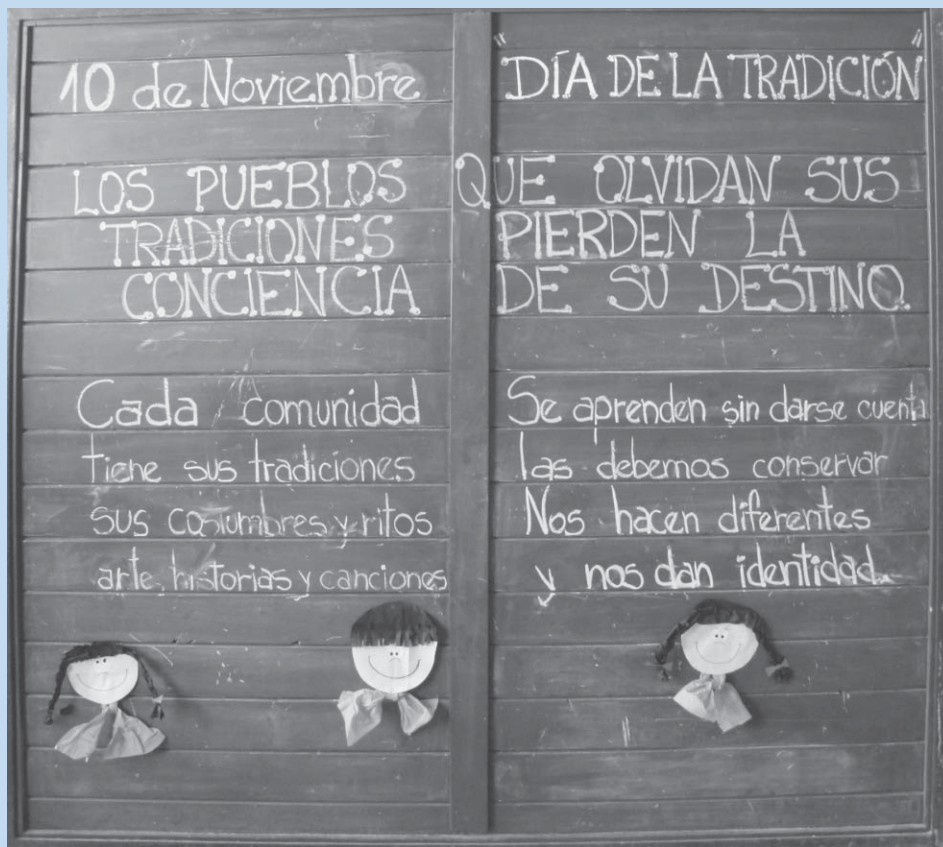 10 de Noviembre "DÍA DE LA TRADICIÓN"
LOS PUEBLOS QUE OLVIDAN SUS
TRADICIONES PIERDEN LA
CONCIENCIA DE SU DESTINO.
Cada comunidad
tiene sus tradiciones
sus costumbres y ritos
arte, historias y canciones
Se aprenden sin darse cuenta
las debemos conservar
Nos hacen diferentes
y nos dan identidad.